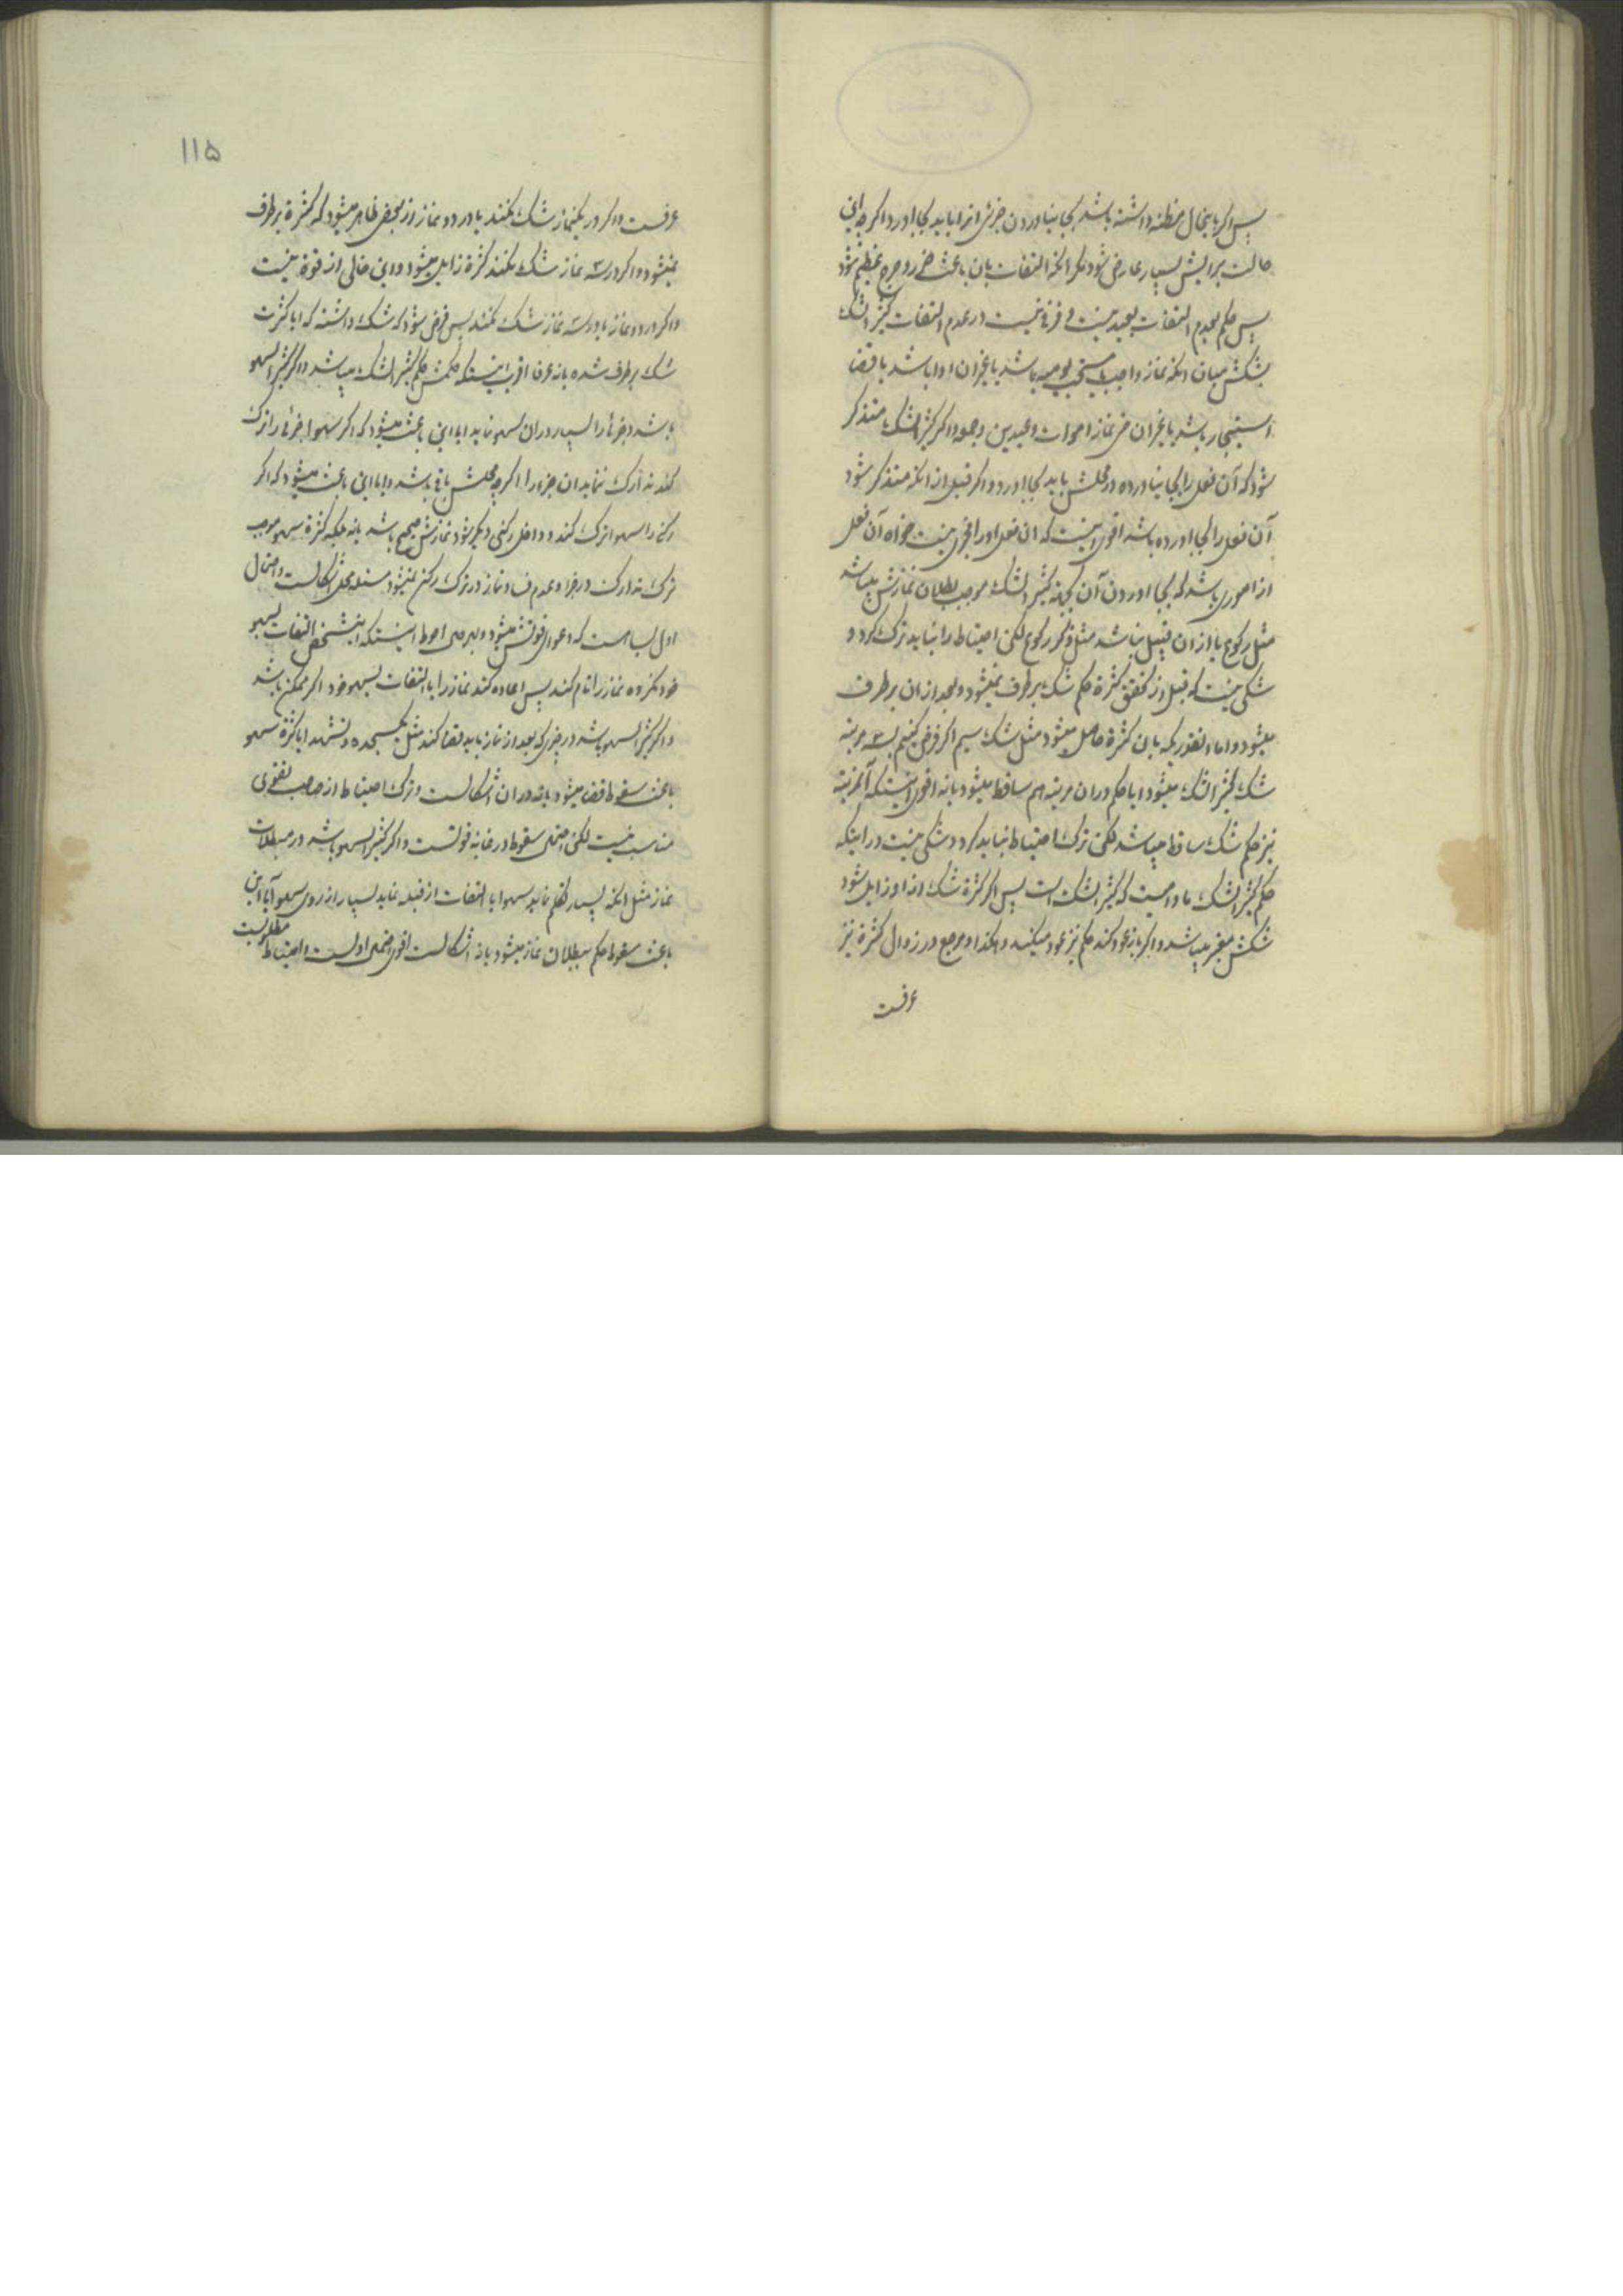 پس اگر باینحال مظنه داشته باشد بجا نیاوردن جزئی انرا باید بجا اورد اگرچه این
حالت برایش بسیار عارض شود مگر انکه التفات بان باعث ضرر و حرج عظیم شود
پس حکم بعدم التفات بعید نیست و فرقی نیست در عدم التفات کثیر الشک
بشکش میان انکه نماز واجب یا مستحب یومیه باشد یا غیر ان ادا باشد یا قضا
استیجار باشد یا غیر ان حتی نماز اموات و عیدین و جمعه و اگر کثیر الشک متذکر
شود که آن فعل را بجا نیاورده در محلش باید بجا اورد و اگر قبل از انکه متذکر شود
آن فعل را بجا اورده باشد اقوی اینست که ان فعل او را مجزی نیست خواه آن فعل
از اموری باشد که بجا اوردن آن بجهة کثیر الشک موجب بطلان نمازش میباشد
مثل رکوع یا از ان قبیل نباشد مثل ذکر رکوع لکن احتیاط را نباید ترک کرد و
شکی نیست که قبل از تحقق کثرة حکم شک برطرف نمیشود و بعد از ان برطرف
میشود و اما انقدریکه بان کثرة حاصل میشود مثل شک سیم اگر فرض کنیم بسه مرتبه
شک کثیر الشک میشود ایا حکم در ان مرتبه هم ساقط میشود یا نه اقوی اینستکه آنمرتبه
نیز حکم شک ساقط میباشد لکن ترک احتیاط نباید کرد و شکی نیست در اینکه
حکم کثیر الشک مادامیست که کثیر الشک است پس اگر کثرة شک از او زایل شود
شکش معتبر میباشد و اگر باز عود کند حکم نیز عود میکند و هکذا و مرجع در زوال کثرة نیز
عرفست
۱۱۵
عرفست و اگر در یکنماز شک نکند یا در دو نماز از بعض ظاهر میشود که کثرة برطرف
نمیشود و اگر در سه نماز شک نکند کثرة زایل میشود و این خالی از قوة نیست
و اگر در دو نماز یا در سه نماز شک نکند پس فرض شود که شک داشته که ایا کثرت
شک برطرف شده یا نه عرفا اقرب اینستکه حکمش حکم کثیر الشک میباشد و اگر کثیر السهو
باشد و جزئی را بسیار در ان سهو نماید ایا این باعث میشود که اگر سهوا جزئی را ترک
کند تدارک ننماید ان جزء را اگرچه محلش باقی باشد و ایا این باعث میشود که اگر
رکنی را سهوا ترک کند و داخل رکنی دیگر شود نمازش صحیح باشد یا نه بلکه کثرة سهو موجب
ترک تدارک در جزء و عدم فساد نماز در ترک رکن نمیشود مسئله محل اشکالست و احتمال
اول بسیار است که دعوای قوتش میشود و بهر حال احوط اینستکه اینشخص التفات بسهو
خود نکرده نماز را تمام کند پس اعاده کند نماز را با التفات بسهو خود اگر ممکن باشد
و اگر کثیر السهو باشد در چیزی که بعد از نماز باید قضا کند مثل یکسجده و تشهد ایا کثرة سهو
باعث سقوط قضا میشود یا نه در ان اشکالست و ترک احتیاط از صاحب تقوی
مناسب نیست لکن احتمال سقوط در غایة قوتست و اگر کثیر السهو باشد در مبطلات
نماز مثل انکه بسیار تکلم نماید سهوا یا التفات از قبله نماید بسیار از روی سهو آیا این
باعث سقوط حکم ببطلان نماز میشود یا نه اشکالست اقوی احتمال اولست و احتیاط مطلوبست